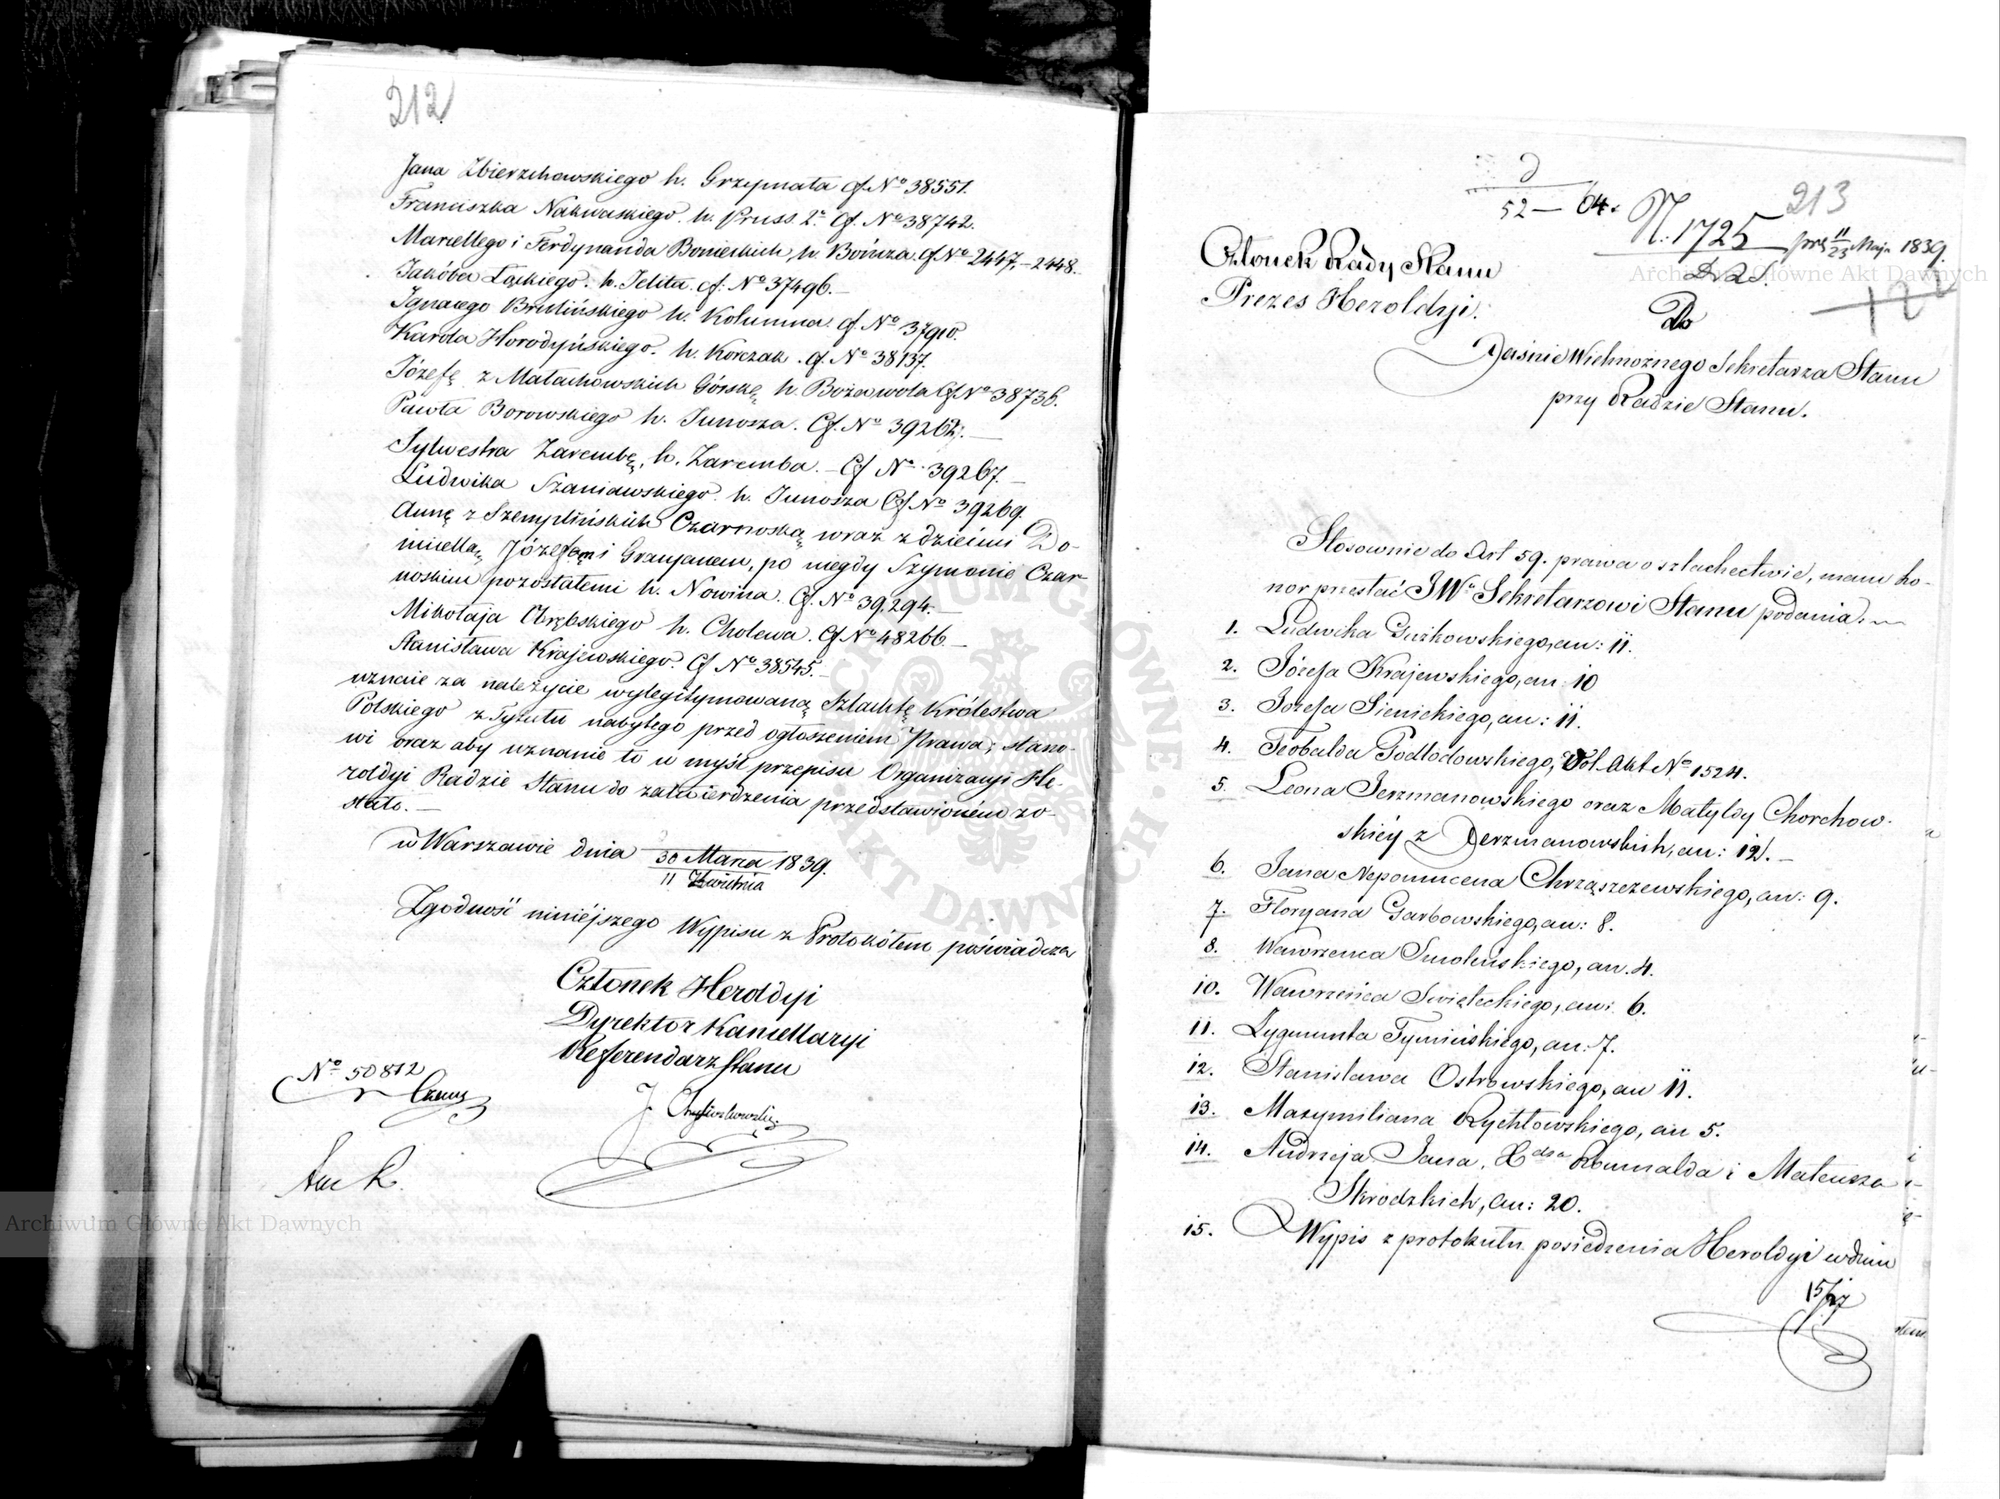 212
Jana Zbierzchowskiego h. Grzymała Cf. No 38551.
Franciszka Nakwaskiego h. Pruss 2o Cf. No 38742.
Marcellego i Ferdynanda Bonieckich h. Bończa Cf No 2447.-2448.
Jakóba Łąckiego. h. Jelita. cf: No 37496.-
Ignacego Brulińskiego h. Kolumna Cf. No 37910.
Karola Horodyńskiego. h. Korczak. Cf. No 38137.
Józefę z Małachowskich Górskę h. Bożawola Cf No 38736.
Pawła Borowskiego h. Junosza. Cf. No 39262. -
Sylwestra Zarembę, h. Zaremba. - Cf No 39267. -
Ludwika Szaniawskiego h. Junosza Cf. No 39269.
Annę z Szemplińskich Czarnoską wraz z dziećmi Do-
micellą, Józefem i Grancyanem, po niegdy Szymonie Czar-
noskim pozostałemi h. Nowina. Cf. No 39,294.-
Mikołaja Obrębskiego h. Cholewa. Cf No 48266. -
Stanisława Krajewskiego. Cf No 38545. -
uznaie za należycie wylegitymowaną Szlachtę Królestwa
Polskiego z Tytułu nabytego przed ogłoszeniem Prawa; stano-
wi oraz aby uznanie to w myśl przepisu Organizacyi He-
roldyi Radzie Stanu do zatwierdzenia przedstawionem zo-
stało. -
w Warszawie dnia 30 Marca 1839.
11 Kwietnia
Zgodność niniéjszego Wypisu z Protokółem poświadcza
Członek Heroldyi
Dyrektor Kancellaryi
Referendarz Stanu
No 50812
213
52 — 64.
N. 1725 prs 11/23 Maja 1839.
Członek Rady Stanu
Prezes Heroldyi.
Do
Jaśnie Wielmożnego Sekretarza Stanu
przy Radzie Stanu.
Stosownie do Art 59. prawa o szlachectwie, mam ho-
nor przesłać JWo Sekretarzowi Stanu podania.
1. Ludwika Guzkowskiego, an: 11.
2. Józefa Krajewskiego, an: 10
3. Józefa Sienickiego, an: 11.
4. Teobalda Podłodowskiego, Vol. Akt No 1524.
5. Leona Jerzmanowskiego oraz Matyldy Chorchow-
skiéy z Jerzmanowskich, an: 12. -
6. Jana Nepomucena Chrząszczewskiego, an: 9.
7. Floryana Garbowskiego, an: 8.
8. Wawrzenca Smoleńskiego, an. 4.
10. Wawrzeńca Swięteckiego, an: 6.
11. Zygmunta Tymińskiego, an: 7.
12. Stanisława Ostrowskiego, an 11.
13. Maxymiliana Rychłowskiego, an 5.
14. Andrzeja Jana, Xdza Romualda i Mateusza
Skrodzkich, an: 20.
15. Wypis z protokułu posiedzenia Heroldyi w dniu
15/27
Archiwum Główne Akt Dawnych
Archiwum Główne Akt Dawnych
ARCHIWUM GŁÓWNE AKT DAWNYCH